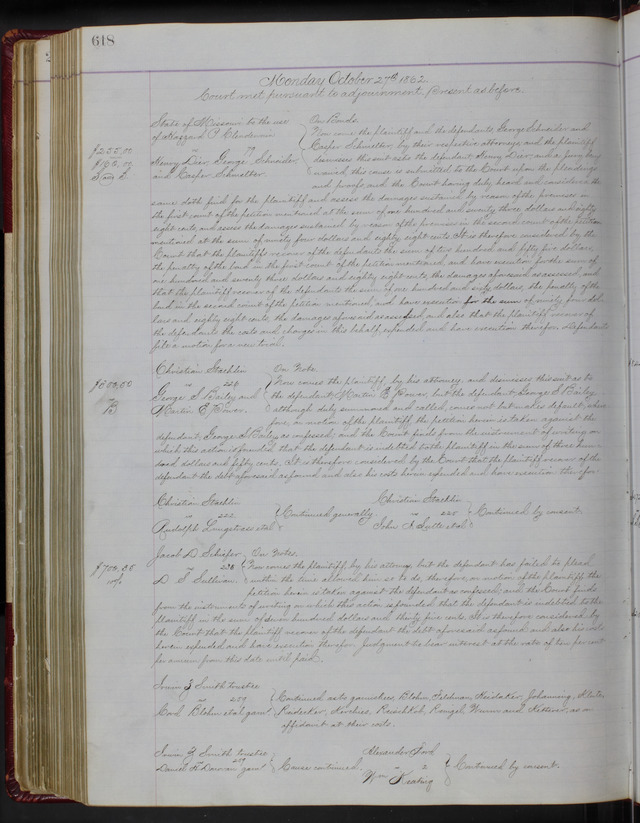 618
Monday October 27th 1862.
Court met pursuant to adjournment, Present as before.
State of Missouri to the use
of
79
Henry Dier, George Schneider
and Casper Schwelter
$255.00
$160.00
On Bonds.
Now come the plaintiff and the defendants, George Schneider and
Casper Schwelter, by their respective attorneys, and the plaintiff
dismisses this suit as to the defendant Henry Dier, and a jury being
waived, this cause is submitted to the Court upon the pleadings
and proofs, and the Court having duly heard and considered the
same doth find for the plaintiff and assess the damages sustained by reason of the premises in
the first count of the petition mentioned at the sum of one hundred and seventy three dollars and eighty
eight cents, and assess the damages sustained by reason of the premises in the second count of the petition
mentioned at the sum of ninety four dollars and eighty eight cents. It is therefore considered by the
Court that the plaintiff recover of the defendants the sum of two hundred and fifty five dollars,
the penalty of the bond in the first count of the petition mentioned, and have execution for the sum of
one hundred and seventy three dollars and eighty eight cents, the damages aforesaid as assessed, and
that the plaintiff recover of the defendants the sum of one hundred and sixty dollars, the penalty of the
bond in the second count of the petition mentioned, and have execution for the sum of ninety four dol-
lars and eighty eight cents, the damages aforesaid as assessed, and also that the plaintiff recover of
the defendants the costs and charges in this behalf expended and have execution therefor. Defendants
file a motion for a new trial.
Christian Staehlin
226
George S Bailey and
Martin E Power.
$300.50
On Note.
Now comes the plaintiff, by his attorney, and dismisses this suit as to
the defendant Martin E Power, but the defendant George S Bailey
although duly summoned and called, comes not but makes default, where-
fore, on motion of the plaintiff the petition herein is taken against the
defendant, George S Bailey as confessed, and the Court finds from the instrument of writing on
which this action is founded that the defendant is indebted to the plaintiff in the sum of three hun-
dred dollars and fifty cents. It is therefore considered by the Court that the plaintiff recover of the
defendant the debt aforesaid as found and also his costs herein expended and have execution therefor
Christian Staehlin
222
Rudolph et al
Continued generally.
Christian Staehlin
225
John et al
Continued by consent.
Jacob D. Schiefer
228
D. S Sullivan.
$700.35
On Notes.
Now comes the plaintiff, by his attorney, but the defendant has failed to plead
within the time allowed him so to do, therefore, on motion of the plaintiff the
petition herein is taken against the defendant as confessed, and the Court finds
from the instruments of writing on which this action is founded that the defendant is indebted to the
plaintiff in the sum of seven hundred dollars and thirty five cents. It is therefore considered by
the Court that the plaintiff recover of the defendant the debt aforesaid as found and also his costs
herein expended and have execution therefor. Judgment to bear interest at the rate of ten per cent
per annum from this date until paid.
Irwin Z Smith trustee
259
Carl Blohm et al garns
Continued as to garnishees, Blohm,
and as on
affidavit at their costs.
Irwin Z Smith trustee
Daniel garnt
Cause continued.
Alexander
2
Wm Keating
Continued by consent.